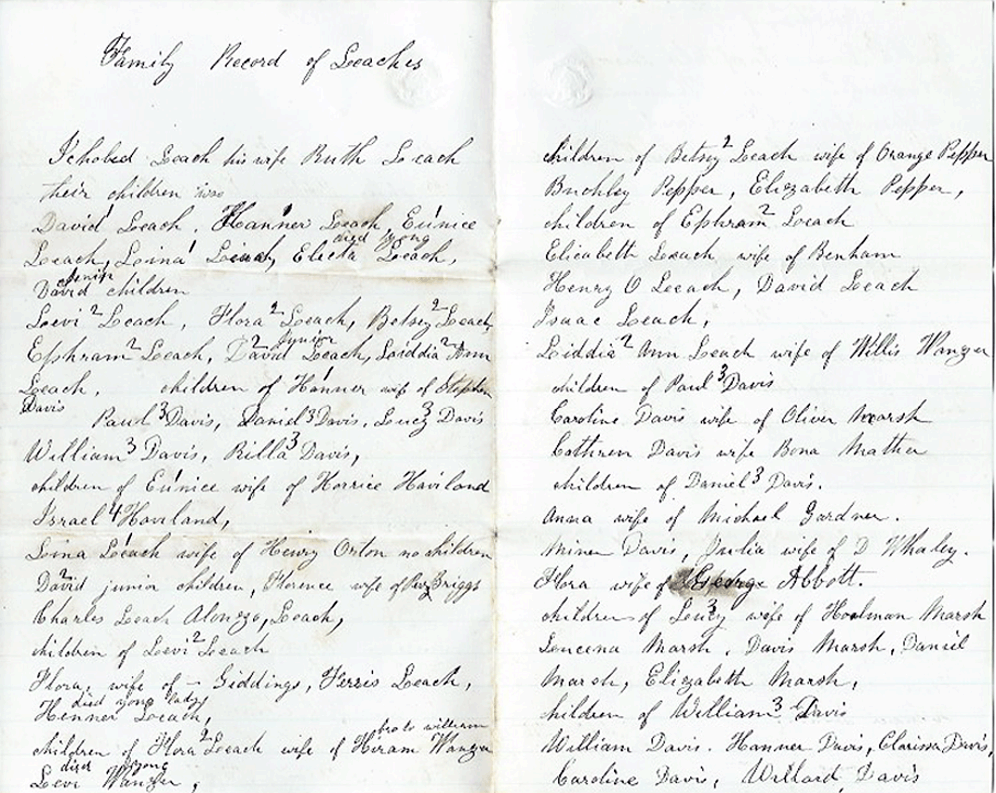 Family Record of Leaches
Ichobed Leach his wife Ruth Leach
their children was
David Leach. Hanner Leach, Eunice
died yong
Leach, Loina Leach, Electa Leach,
senior
David children
Levi 2 Leach, Flora 2 Leach, Betsey 2 Leach
junior
Ephram 2 Leach, David 2 Leach, Liddia 2 Ann
Leach, children of Hanner wife of Stephen
Davis
Paul 3 Davis, Daniel 3 Davis, Lucy 3 Davis
William 3 Davis, Rilla 3 Davis,
children of Eunice wife of Horrice Haviland
Israel 4 Haviland,
Loina Leach wife of Henry Orton no children
David 2 junior children, Florence wife of Briggs
Charles Leach Alonzo, Leach,
children of Levi 2 Leach
Flora, wife of - Giddings, Ferris Leach,
died yong lady
Henner Leach,
bro to willerson
children of Flora 2 Leach wife of Hiram Wanzer
died yong
Levi Wanzer,
children of Betsey 2 Leach wife of Orange Pepper
Buchley Pepper, Elizabeth Pepper,
children of Ephram 2 Leach
Elicabeth Leach wife of Benham
Henry O Leeach, David Leach
Isaac Leach,
Liddia 2 Ann Leach wife of Willis Wanzer
children of Paul 3 Davis
Caroline Davis wife of Oliver Marsh
Cathren Davis wife Bona Mather
children of Daniel 3 Davis.
Anna wife of Michael Gardner.
Miner Davis, Julia wife of D Whaley.
Flora wife of George Abbott.
children of Lucy 3 wife of Hoolman Marsh
Leucena Marsh, Davis Marsh, Daniel
Marsh, Elizabeth Marsh,
children of William 3 Davis
William Davis. Hanner Davis, Clarissa Davis,
Caroline Davis, Willard Davis